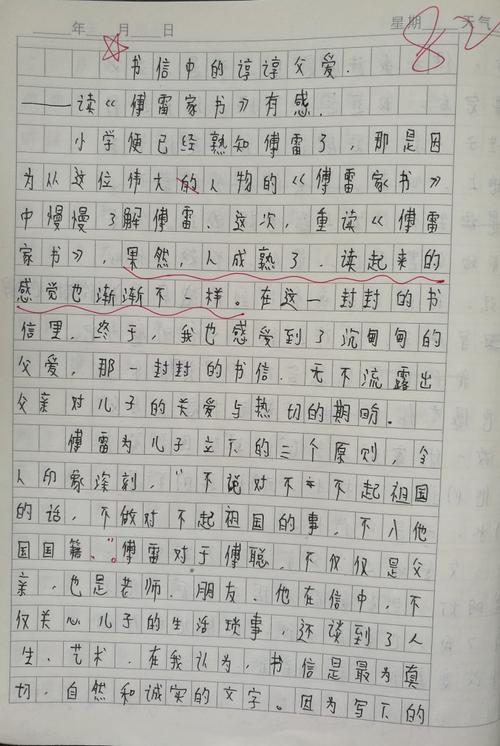 年 月 日 星期 天气
82
书信中的谆谆父爱.
——读《傅雷家书》有感.
小学便已经熟知傅雷了，那是因
为从这位伟大的人物的《傅雷家书》
中慢慢了解傅雷.这次，重读《傅雷
家书》，果然，人成熟了.读起来的
感觉也渐渐不一样。在这一封封的书
信里，终于，我也感受到了沉甸甸的
父爱，那一封封的书信.无不流露出
父亲对儿子的关爱与热切的期盼。
傅雷为儿子立下的三个原则，令
人印象深刻，"不说对不起祖国
的话，不做对不起祖国的事，不入他
国国籍."傅雷对于傅聪，不仅仅是父
亲，也是老师.朋友.他在信中，不
仅关心儿子的生活琐事，还谈到了人
生、艺术.在我认为，书信是最为真
切，自然和诚实的文字。因为写下的